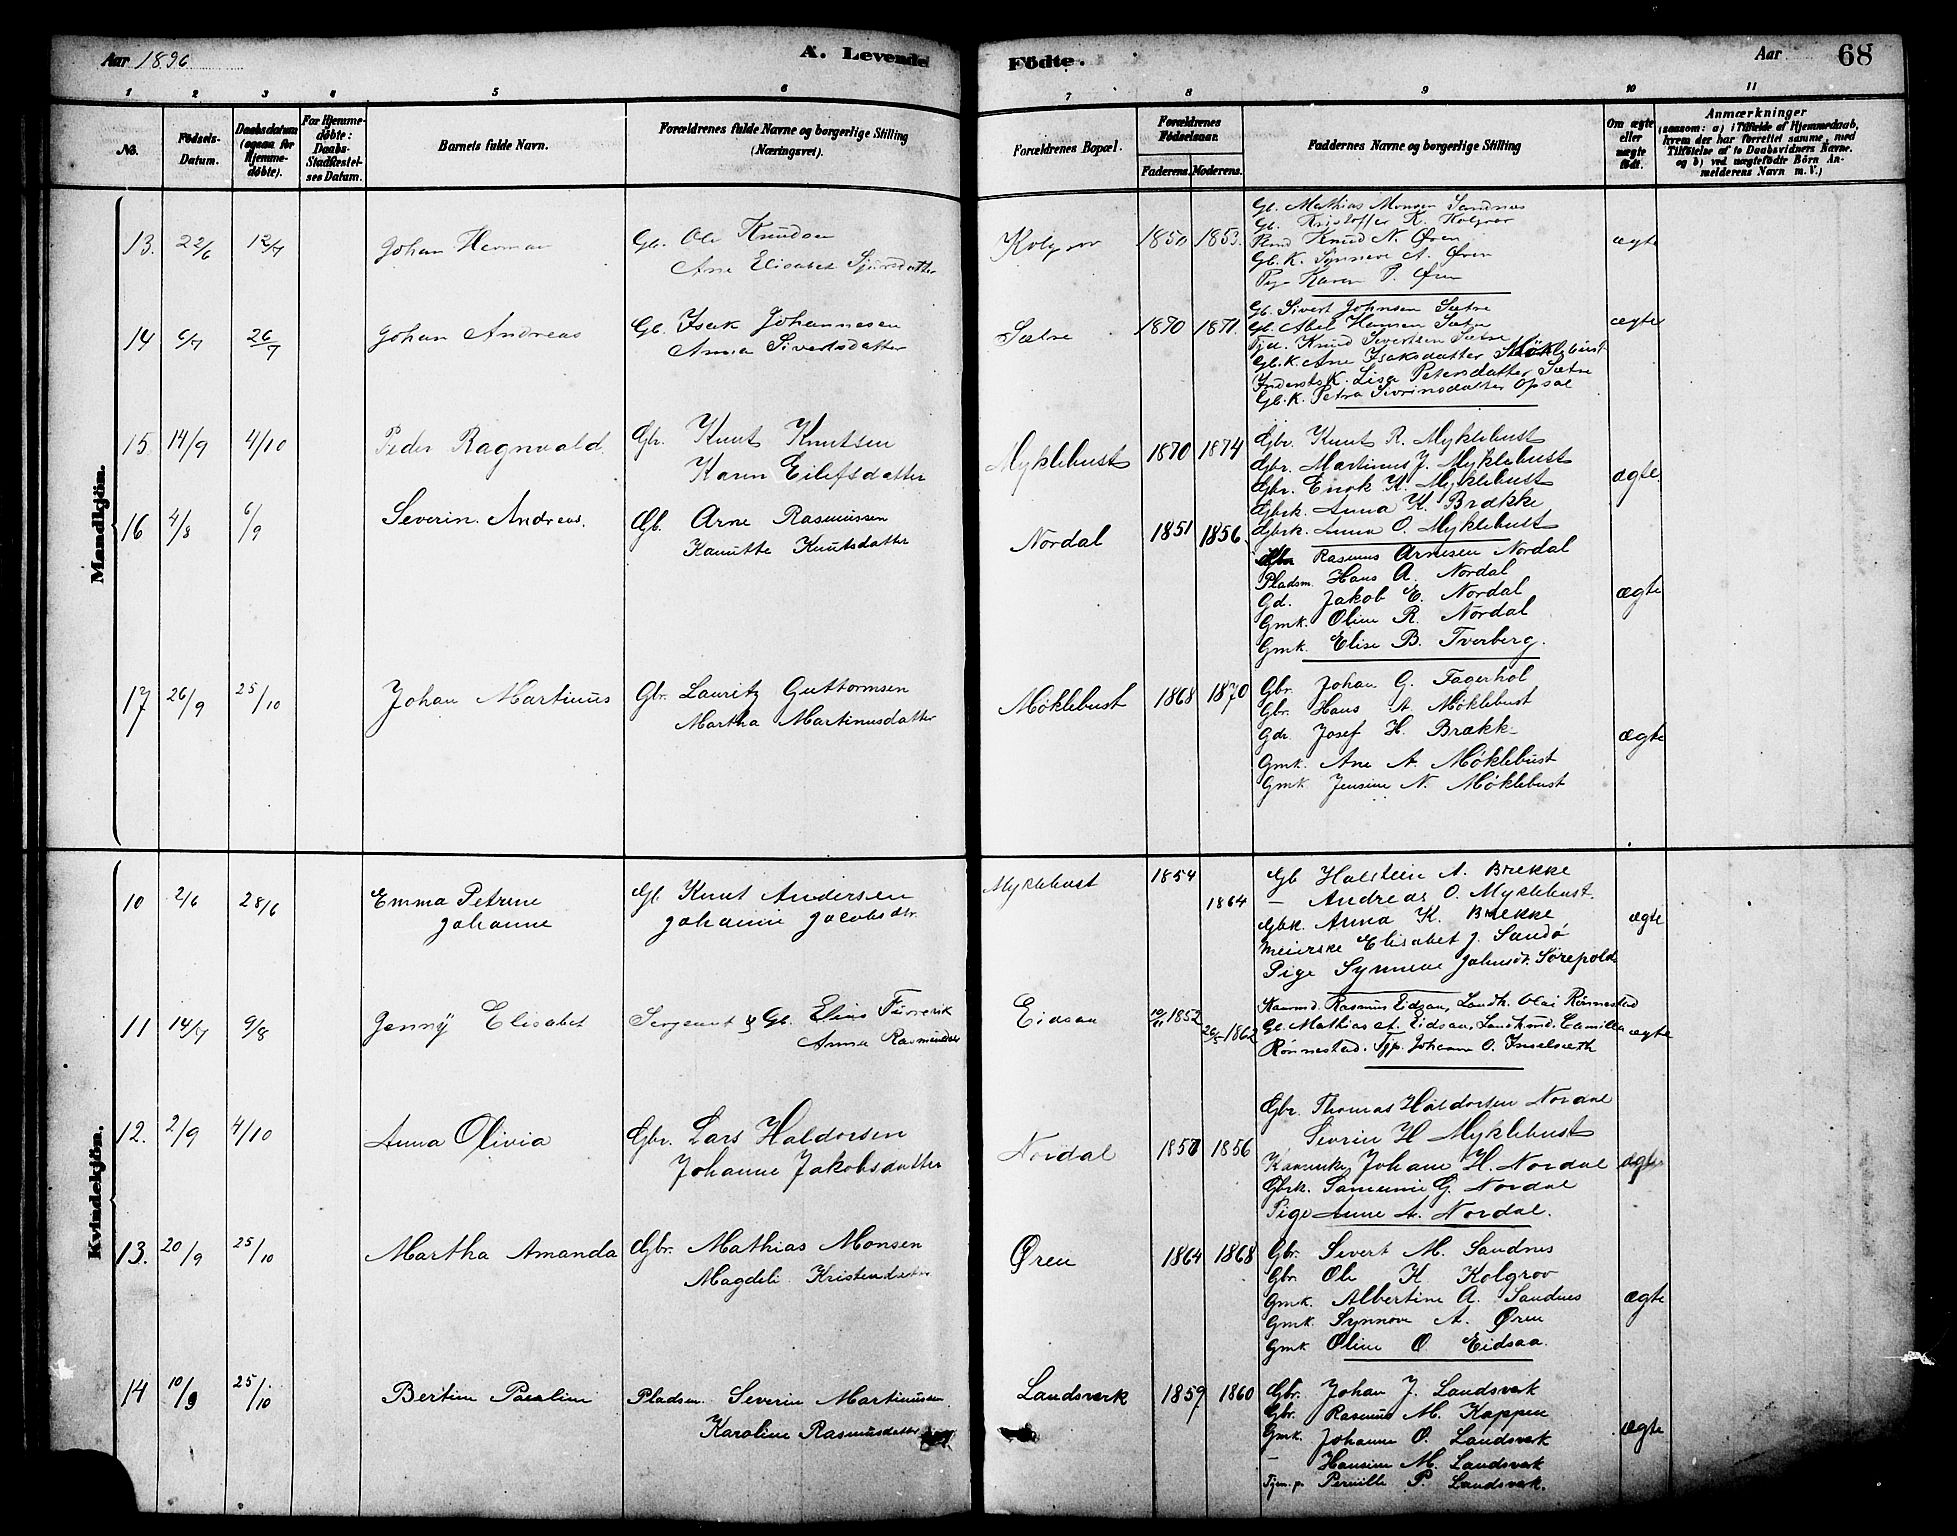 Aar 1896
A. Levende
Födte.
Aar
68
1
2
3
4
5
6
7
8
9
10
11
No.
Födsels-Datum.
Daabsdatum (ogsaa for Hjemme-døbte).
For Hjemme-døbte: Daabs-Stadfæstel-ses Datum.
Barnets fulde Navn.
Forældrenes fulde Navne og borgerlige Stilling (Næringsvei).
Forældrenes Bopæl.
Forældrenes Födselsaar.
Faderens.
Moderens.
Faddernes Navne og borgerlige Stilling
Om ægte eller uægte født.
Anmærkninger
(saasom: a) i Tilfælde af Hjemmedaab, hvem der har forrettet samme, med Tilföielse af to Daabsvidners Navne. og b) ved uægtefödte Börn An-melderens Navn m. V.)
Mandkjön.
13. 22/6 12/7 Johan Herman
Gb. Ole Knudsen
Ane Elisabet Sjursdatter
Kolgrov 1850 1853.
Gb. Mathias Monsen Sandnes
Gb. Kristoffer K. Kolgrov
Knud N. Øren
Gb.K. Synneve A. Øren
Pige Karen P. Øren
ægte
14 6/7 26/7 Johan Andreas
Gb. Isak Johannesen
Anna Sivertsdatter
Sætre 1870 1871.
Gb. Sivert Johnsen Sætre
Gb. Abel Hansen Sætre
Knud Sivertsen Sætre
Gb.K. Ane Isaksdatter Möklebust
K. Lisa Petersdatter Sætre
Gb.K. Petra Sivrinsdatter Opsal
ægte
15 14/9 4/10 Peder Ragnvald
Gbr. Knut Knutsen
Karen Eilefsdatter
Myklebust 1870 1874
Gbr. Knut R. Myklebust
Gbr. Martinus J. Myklebust
Gbr. Enok K. Myklebust
Gbrk. Anna K. Brække
Gbrk. Anna O. Myklebust
ægte
16 4/8 6/9 Severin Andreas.
Gb. Arne Rasmussen
Kanutte Knutsdatter
Nordal 1851 1856.
Rasmus Arnesen Nordal
Pladsm. Hans A. Nordal
Gd. Jakob E. Nordal
Gmk. Oline R. Nordal
Gmk. Elise B. Tverberg.
ægte
17 26/9 25/10 Johan Martinus
Gbr. Lauritz Guttormsen
Martha Martinusdatter
Møklebust 1868 1870
Gbr. Johan G. Fagerhol
Gbr. Hans A. Møklebust
Gdr. Josef H. Brække
Gmk. Ane A. Møklebust
Gmk. Jensine N. Møklebust
ægte
Kvindekjön.
10 2/6 28/6 Emma Petrine
Johanne
Gb Knut Andersen
Johanne Jacobsdtr.
Myklebust 1854
1864
Gb Halstein A. Brekke
- Andreas O. Myklebust.
Gbk. Anna K. Brekke
Meierske Elisabet J. Sandö
Pige Synneve Johnsdt. Sörepold
ægte
11 14/7 9/8 Jenny Elisabet
Sergeant & Gb. Elias
Anna
Eidsaa 10/11 1852
26/5 1862
Rasmus Eidsaa, Landh. Olai Rönnestad
Gb. Mathias A. Eidsaa, Camilla
Rönnestad. Johanne O.
ægte
12. 2/9 4/10 Anna Olivia
Gbr. Lars Haldorsen
Johanne Jakobsdatter
Nordal 1858 1856
Gbr. Thomas Haldorsen Nordal
Sevrin H Myklebust
Johane H. Nordal
Gbrk. G. Nordal
Pige Anne A. Nordal.
ægte
13. 20/9 25/10 Martha Amanda
Gbr. Mathias Monsen
Magdeli Kristensdatter
Øren 1864 1868
Gbr. Sivert M. Sandnes
Gbr. Ole K Kolgrov
Gmk. Albertine A. Sandnes
Gmk. Synnøve A. Øren
Gmk Oline O. Eidsaa
ægte
14 10/9 25/10 Bertine Pauline
Pladsm. Severin Martinussen
Karoline Rasmusdatter
Landsverk 1859 1860
Gbr. Johan J. Landsverk
Gbr. Rasmus M. Koppen
Gmk. Johanne O. Landsverk
- Hansine M. Landsverk
Tjen. p. Pernille P. Landsverk.
ægte